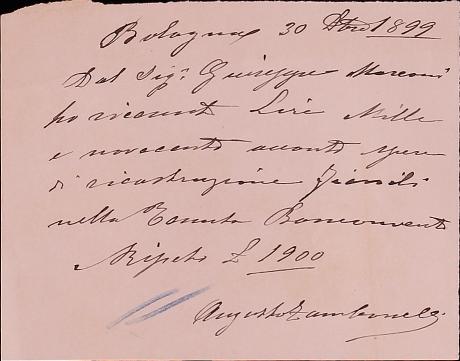 Bologna 30 Xbre 1899
Dal Sigr. Giuseppe Marconi
ho ricevuto Lire Mille
e novecento acconto spese
di ricostruzione fienili
nella Tenuta Boncovento
Ripeto £ 1900
Augusto